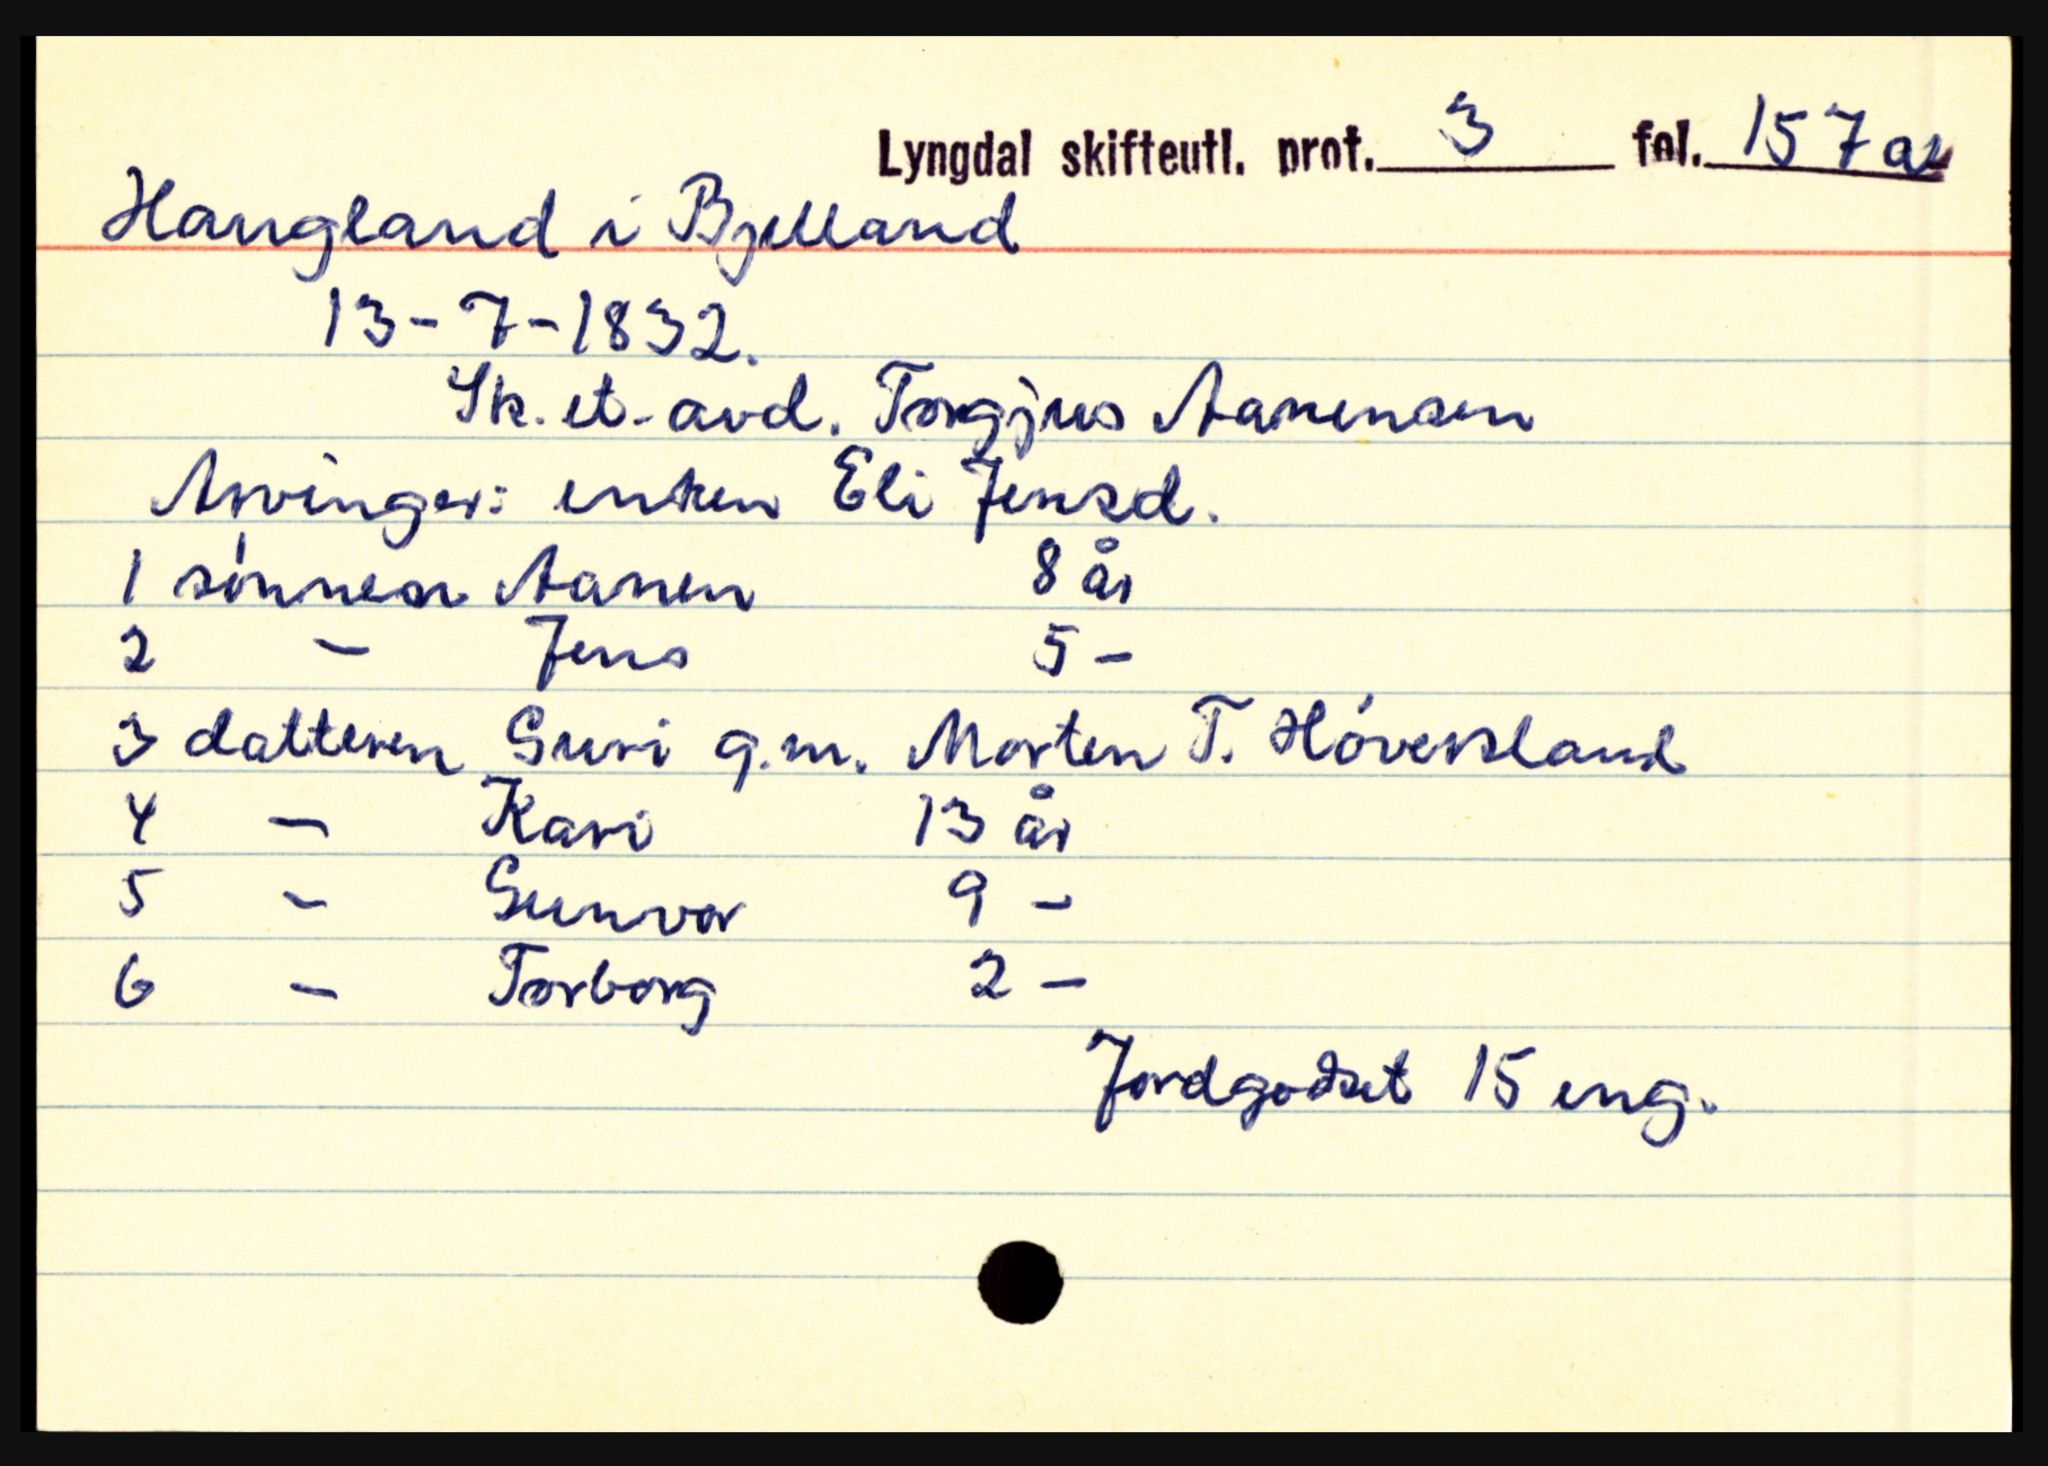 Lyngdal skifteutl. prot. 3 fol. 157a
Haugland i Bjelland
13-7-1832.
Sk. et. avd. Torgjus Aanensen
Arvinger: enken Eli Jensd.
1 sönnen Aanen 8 år
2 - Jens 5 -
3 datteren Guri g.m. Morten T. Höversland
4 - Kari 13 år
5 - Gunvor 9 -
6 - Torborg 2 -
Jordgodset 15 eng.